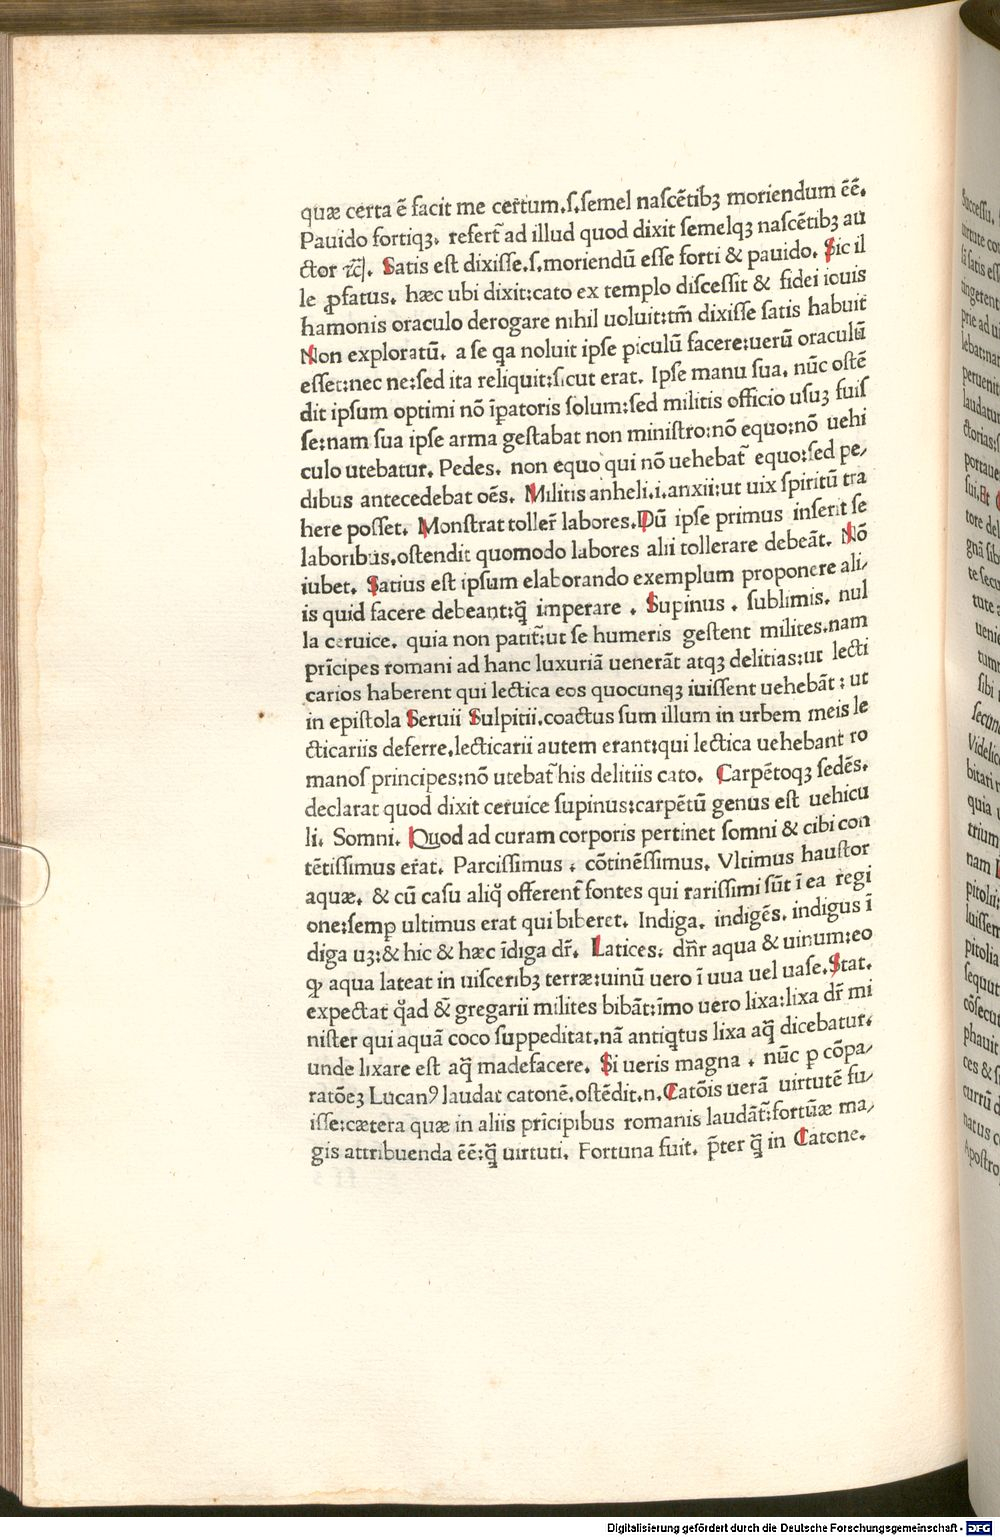 quæ certa ē facit me certum.ſ.ſemel naſcētibꝫ moriendum ēē.
Pauido fortiqꝫ. refert̄ ad illud quod dixit ſemelqꝫ naſcētibꝫ au
ctor ⁊c̄. Satis eſt dixiſſe.ſ.moriendū eſſe forti & pauido. Sic il
le ꝓfatus. hæc ubi dixit:cato ex templo diſceſſit & fidei iouis
hamonis oraculo derogare nihil uoluit:tm̄ dixiſſe ſatis habuit
Non exploratū. a ſe qa noluit ipſe piculū facere:uerū oraculū
eſſet:nec ne:ſed ita reliquit:ſicut erat. Ipſe manu ſua. nūc oſtē
dit ipſum optimi nō īꝑatoris ſolum:ſed militis officio uſuꝫ fuiſ
ſe:nam ſua ipſe arma geſtabat non miniſtro:nō equo:nō uehi
culo utebatur. Pedes. non equo qui nō uehebat̄ equo:ſed pe/
dibus antecedebat oēs. Militis anheli.i.anxii:ut uix ſpiritū tra
here poſſet. Monſtrat toller̄ labores.Dū ipſe primus inſerit ſe
laboribus.oſtendit quomodo labores alii tollerare debeāt. Nō
iubet. Satius eſt ipſum elaborando exemplum proponere ali/
is quid facere debeant:q̄ imperare . Supinus . ſublimis. nul
la ceruice. quia non patit̄:ut ſe humeris geſtent milites.nam
prīcipes romani ad hanc luxuriā uenerāt atqꝫ delitias:ut lecti
carios haberent qui lectica eos quocunqꝫ iuiſſent uehebāt : ut
in epiſtola Seruii Sulpitii.coactus ſum illum in urbem meis le
cticariis deferre.lecticarii autem erant:qui lectica uehebant ro
manoſ principes:nō utebat̄ his delitiis cato. Carpētoqꝫ ſedēs.
declarat quod dixit ceruice ſupinus:carpētū genus eſt uehicu
li. Somni. Quod ad curam corporis pertinet ſomni & cibi con
tētiſſimus erat. Parciſſimus . cōtinēſſimus. Vltimus hauſtor
aquæ. & cū caſu aliq̊ offerent̄ fontes qui rariſſimi ſūt ī ea regi
one:ſemꝑ ultimus erat qui biberet. Indiga. indigēs. indigus ī
diga uꝫ:& hic & hæc īdiga dr̄. Latices. dn̄r aqua & uinum:eo
ꝙ aqua lateat in uiſceribꝫ terræ:uinū uero ī uua uel uaſe.Stat.
expectat q̊ad & gregarii milites bibāt:īmo uero lixa:lixa dr̄ mi
niſter qui aquā coco ſuppeditat.nā antiqtus lixa aq̄ dicebatur.
unde lixare eſt aq̄ madefacere. Si ueris magna . nūc ꝑ cōpa/
ratōeꝫ Lucanꝰ laudat catonē.oſtēdit.n.Catōis uerā uirtutē fu/
iſſe:cætera quæ in aliis prīcipibus romanis laudāt̄:fortūæ ma/
gis attribuenda ēē:q̄ uirtuti. Fortuna fuit. p̄ter q̄ in Catone.
Digitalisierung gefördert durch die Deutsche Forschungsgemeinschaft - DFG